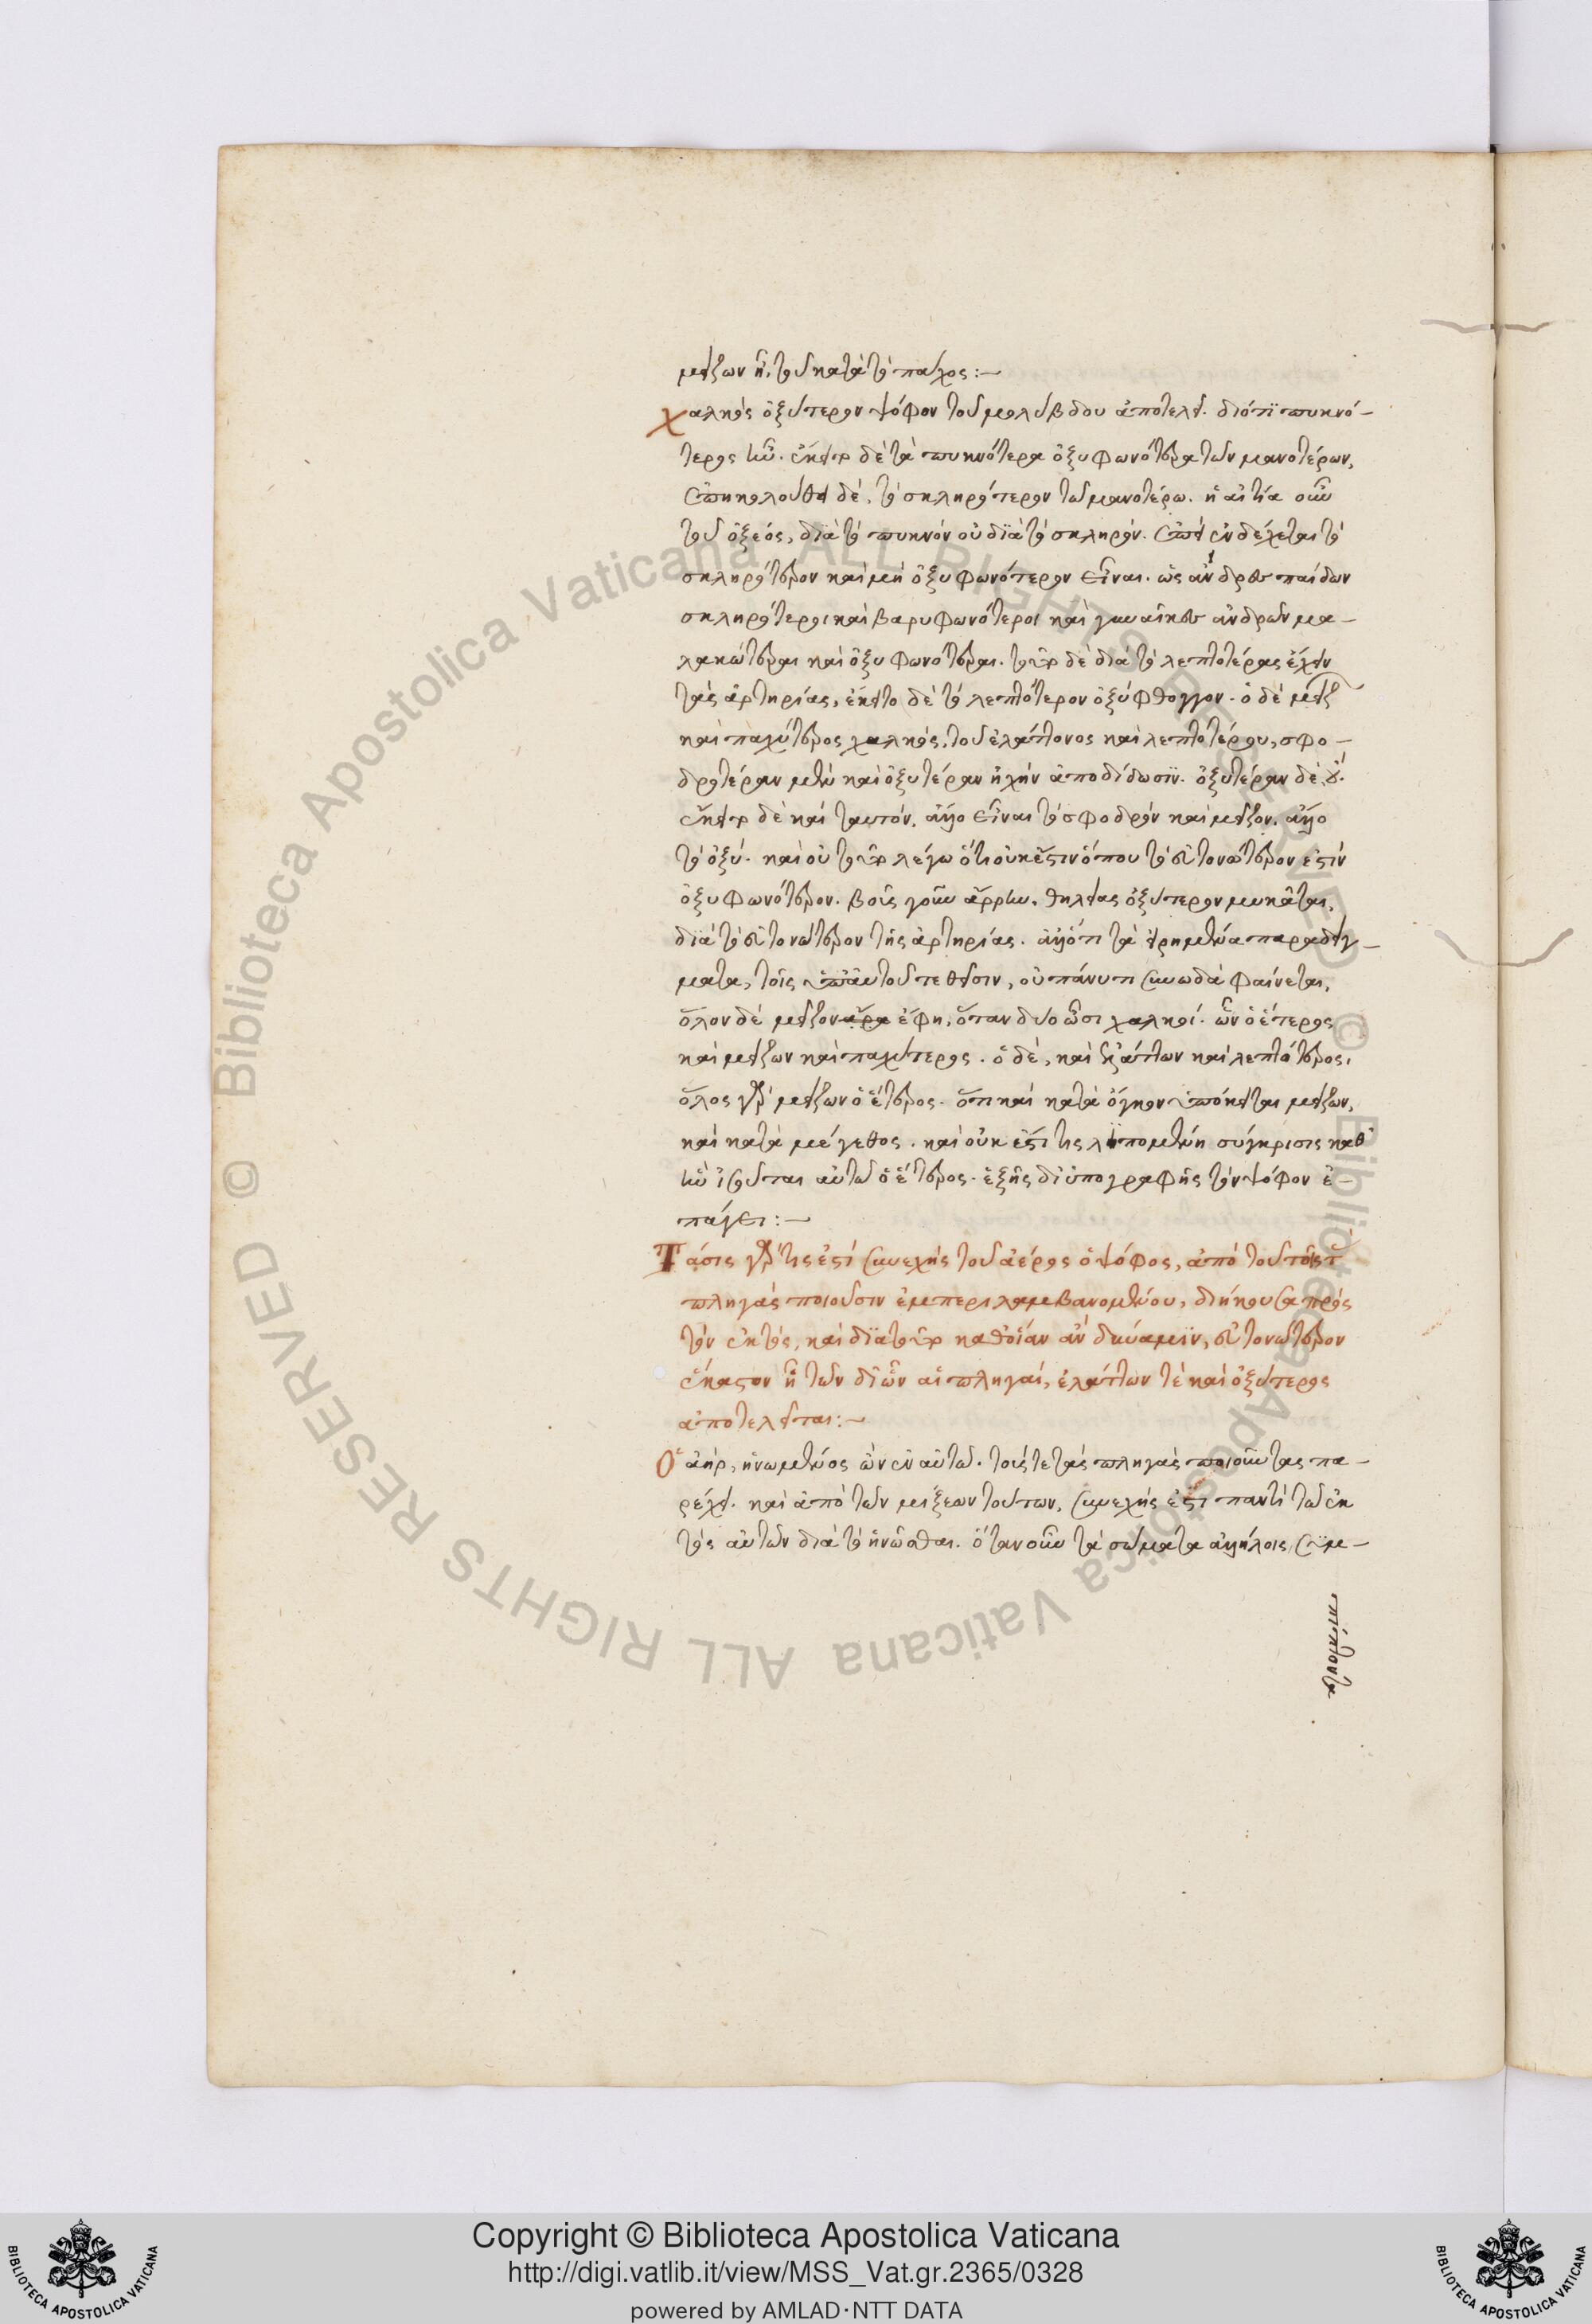 μείζων ἢ, τοῦ κατὰ τὸ πάχος :—
χαλκὸς ὀξύτερον ψόφον τοῦ μολύβδου ἀποτελεῖ. διότι πυκνό-
τερος ἦν. ἔκειτο δὲ τὰ πυκνότερα ὀξυφωνότερα τῶν μανοτέρων,
ἐπηκολούθει δὲ, τὸ σκληρότερον τῷ μανοτέρω. ἡ αἰτία οὖν
τοῦ ὀξέος, διὰ τὸ πυκνὸν οὐ διὰ τὸ σκληρόν. ἐπεὶ ἐνδέχεται τὸ
σκληρότερον καὶ μὴ ὀξυφωνότερον εἶναι. ὡς ἄνδρες παίδων
σκληρότεροι καὶ βαρυφωνότεροι καὶ γυναῖκες ἀνδρῶν μα-
λακώτεραι καὶ ὀξυφωνότεραι. τοῦτο δὲ διὰ τὸ λεπτοτέρας ἔχειν
τὰς ἀρτηρίας, ἔκειτο δὲ τὸ λεπτότερον ὀξύφθογγον. ὁ δὲ μείζ
καὶ παχύτερος χαλκὸς, τοῦ ἐλάττονος καὶ λεπτοτέρου, σφο-
δροτέραν μὲν καὶ ὀξυτέραν ἠχὴν ἀποδίδωσιν. ὀξυτέραν δὲ, οὔ.
ἔκειτο δὲ καὶ ταυτὸν, ἄλλο εἶναι τὸ σφοδρὸν καὶ μεῖζον, ἄλλο
τὸ ὀξύ. καὶ οὐ τοῦτο λέγω ὅτι οὐκ ἔστιν ὅπου τὸ εὐτονώτερον ἐστὶν
ὀξυφωνότερον. βοῦς γοῦν ἄρρην, θηλείας ὀξύτερον μυκᾶται,
διὰ τὸ εὐτονώτερον τῆς ἀρτηρίας. ἀλλ' ὅτι τὰ εἰρημένα παραδείγ-
ματα, τοῖς ὑπ' αὐτοῦ τεθεῖσιν, οὐ πάνυ τι συνωδὰ φαίνεται.
ὅλον δὲ μεῖζον ἄρα ἔφη, ὅταν δύο ὦσι χαλκοί. ὧν ὁ ἕτερος
καὶ μείζων καὶ παχύτερος. ὁ δὲ, καὶ ἐλάττων καὶ λεπτότερος,
ὅλος γὰρ μείζων ὁ ἕτερος. ὅτι καὶ κατὰ ὄγκον ὑπόκειται μείζων,
καὶ κατὰ μέγεθος. καὶ οὐκ ἔστι τις λειπομένη σύγκρισις καθ'
ἣν ἰσοῦται αὐτῷ ὁ ἕτερος. ἑξῆς δι' ὑπογραφῆς τὸν ψόφον ἐ-
πάγει :—
Τάσις γὰρ τίς ἐστι συνεχὴς τοῦ ἀέρος ὁ ψόφος, ἀπὸ τοῦ τοῖς τ
πληγὰς ποιοῦσιν ἐμπεριλαμβανομένου, διήκουσα πρὸς
τὸν ἐκτὸς, καὶ διὰ τοῦτο καθ' οἵαν ἂν δύναμιν, εὐτονώτερον
ἕκαστον ἢ τῶν δι' ὧν αἱ πληγαὶ, ἐλάττων τὲ καὶ ὀξύτερος
ἀποτελεῖται :—
Ὁ ἀὴρ, ἡνωμένος ὢν ἐν αὑτῷ. τοῖς τε τὰς πληγὰς ποιοῦντας πα-
ρέχει. καὶ ἀπὸ τῶν μίξεων τούτων, συνεχής ἐστι παντὶ τῷ ἐκ
τὸς αὐτῶν διὰ τὸ ἡνῶσθαι. ὅταν οὖν τὰ σώματα ἀλλήλοις συμ-
πίπτοντα
Copyright © Biblioteca Apostolica Vaticana
http://digi.vatlib.it/view/MSS_Vat.gr.2365/0328
powered by AMLAD·NTT DATA
BIBLIOTECA APOSTOLICA VATICANA
BIBLIOTECA APOSTOLICA VATICANA
© Biblioteca Apostolica Vaticana ALL RIGHTS RESERVED
© Biblioteca Apostolica Vaticana ALL RIGHTS RESERVED